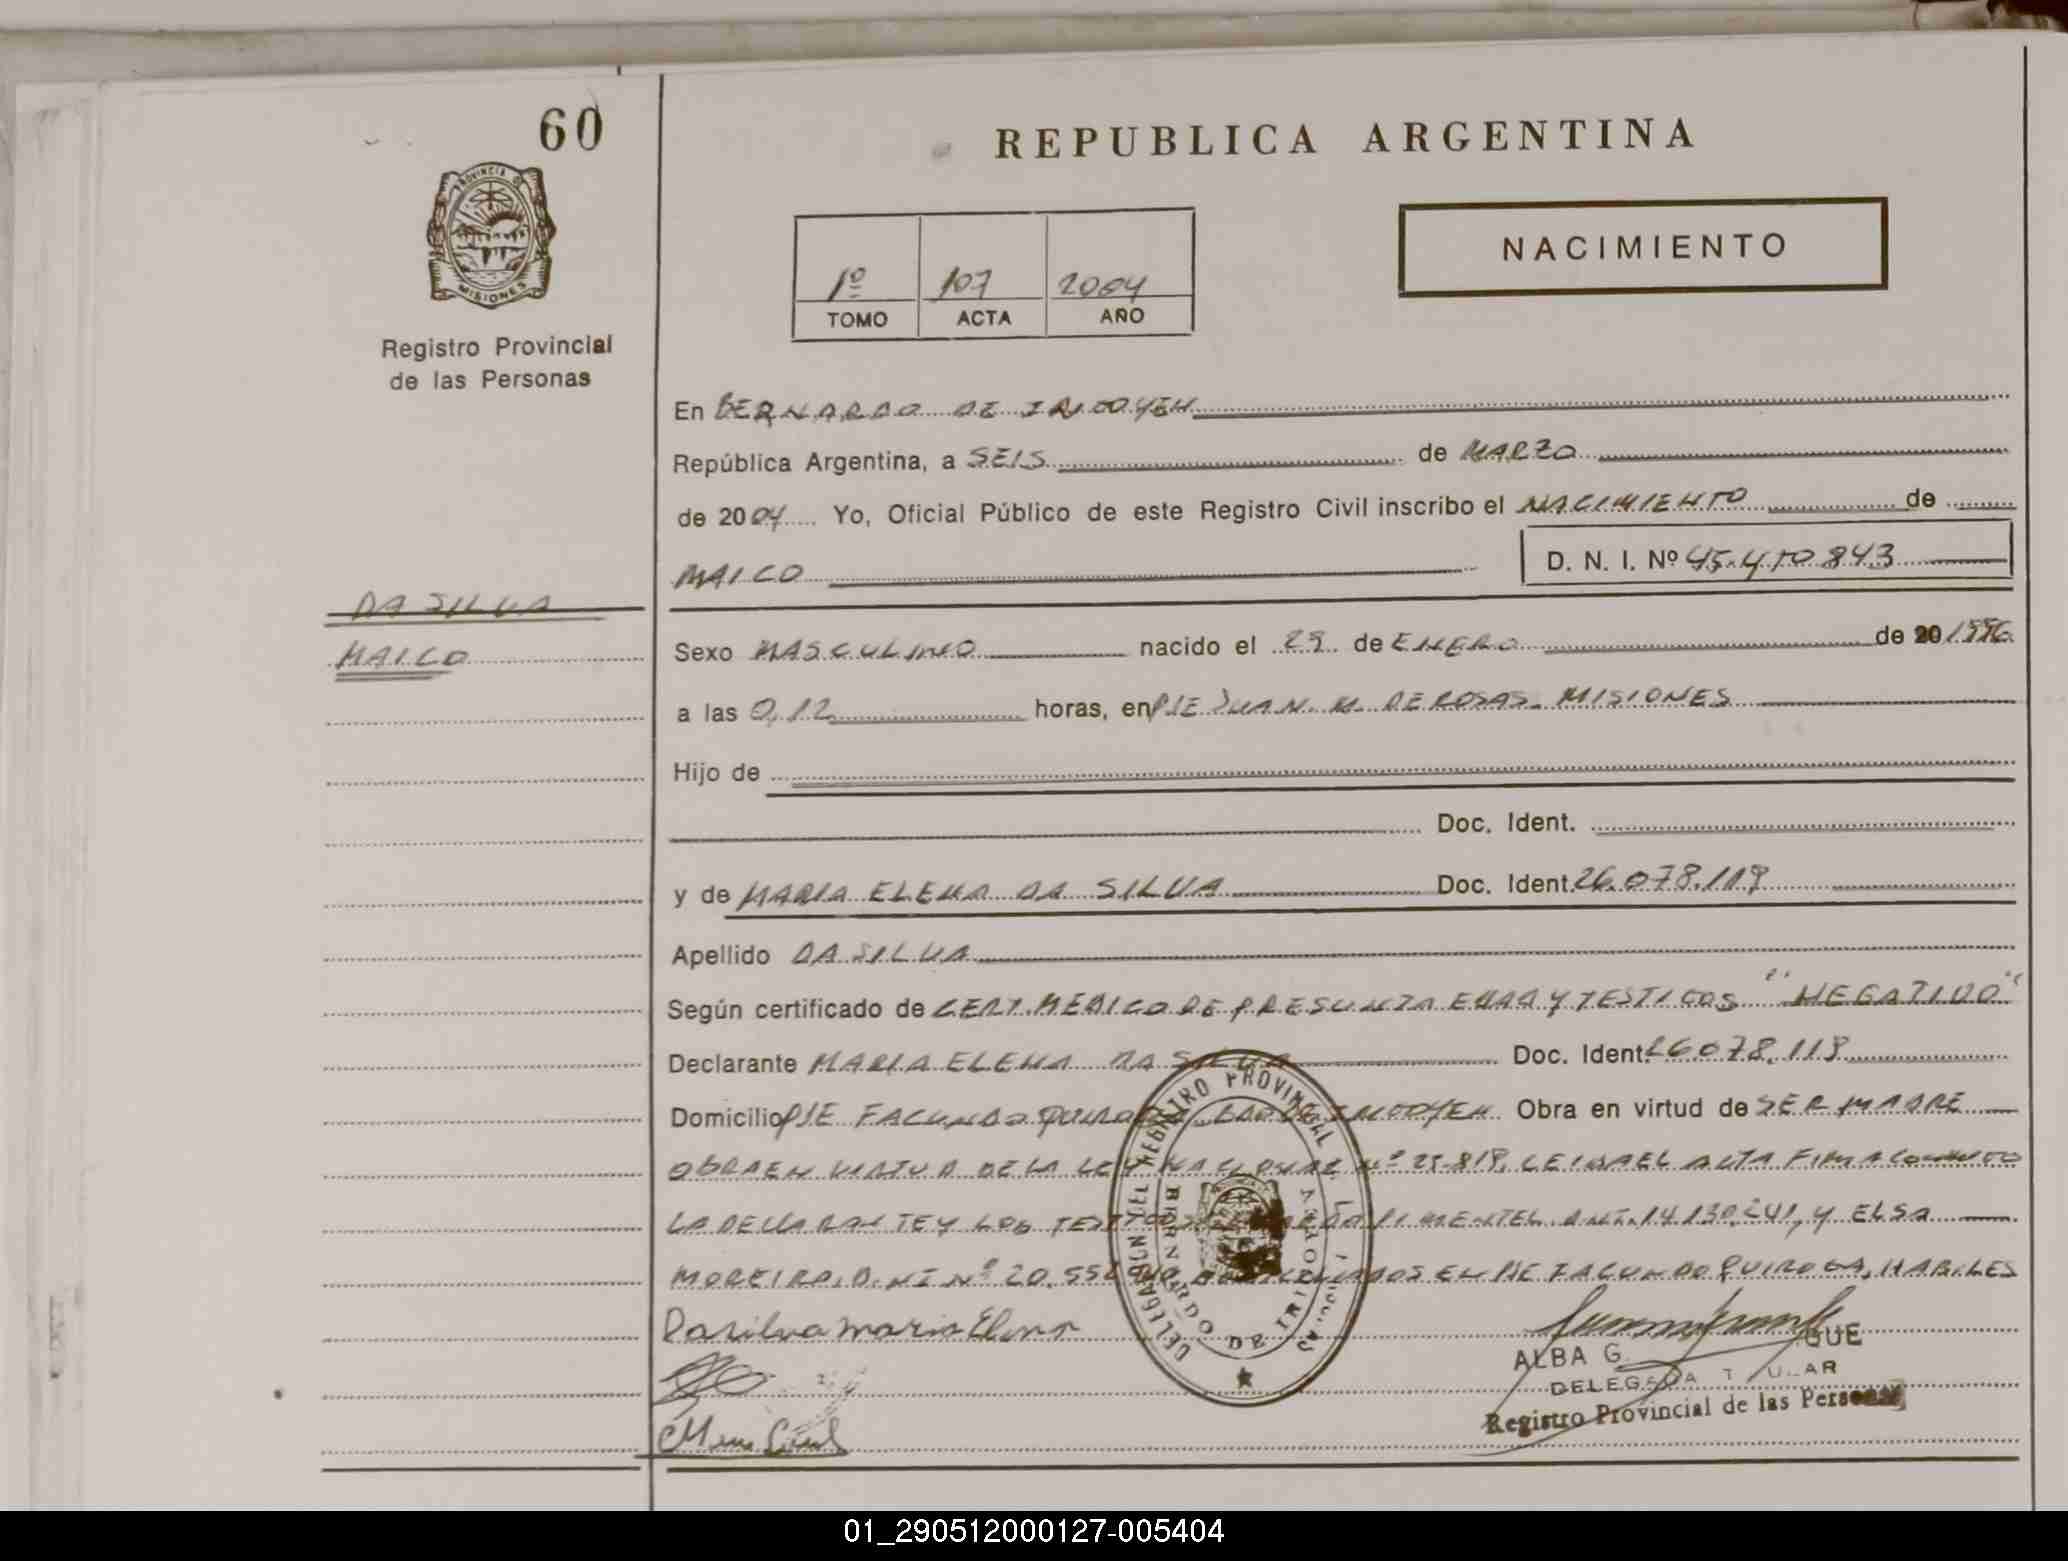 60
REPUBLICA ARGENTINA
PROVINCIA DE
MISIONES
NACIMIENTO
1º 107 2004
TOMO ACTA AÑO
Registro Provincial
de las Personas
En BERNARDO DE IRIGOYEN
República Argentina, a SEIS de MARZO
de 2004 Yo, Oficial Público de este Registro Civil inscribo el NACIMIENTO de
MAICO D. N. I. Nº 45.410.843
DA SILVA
MAICO
Sexo MASCULINO nacido el 29 de ENERO de 20 1996
a las 0,12 horas, en PJE JUAN. M. DE ROSAS. MISIONES
Hijo de
Doc. Ident.
y de MARIA ELENA DA SILVA Doc. Ident. 26.078.119
Apellido DA SILVA
Según certificado de CERT. MEDICO DE PRESUNTA EDAD Y TESTIGOS "NEGATIVO"
Declarante MARIA ELENA DA SILVA Doc. Ident. 26078.119
Domicilio PJE FACUNDO QUIROGA BDO DE IRIGOYEN Obra en virtud de SER MADRE
OBRA EN VIRTUD DE LA LEY NACIONAL Nº 25.819. LEIDA EL ACTA FIRMA CONMIGO
LA DECLARANTE Y LOS TESTIGOS PIMENTEL D.N.I. 14.130.241, Y ELSA
MOREIRA, D.NI Nº 20.55 DOMICILIADOS EN PJE FACUNDO QUIROGA, HABILES
Dasilva Maria Elena
DELEGACION DEL REGISTRO PROVINCIAL
BERNARDO DE IRIGOYEN
ALBA G. GUE
DELEGADA TITULAR
Registro Provincial de las Personas
01_290512000127-005404